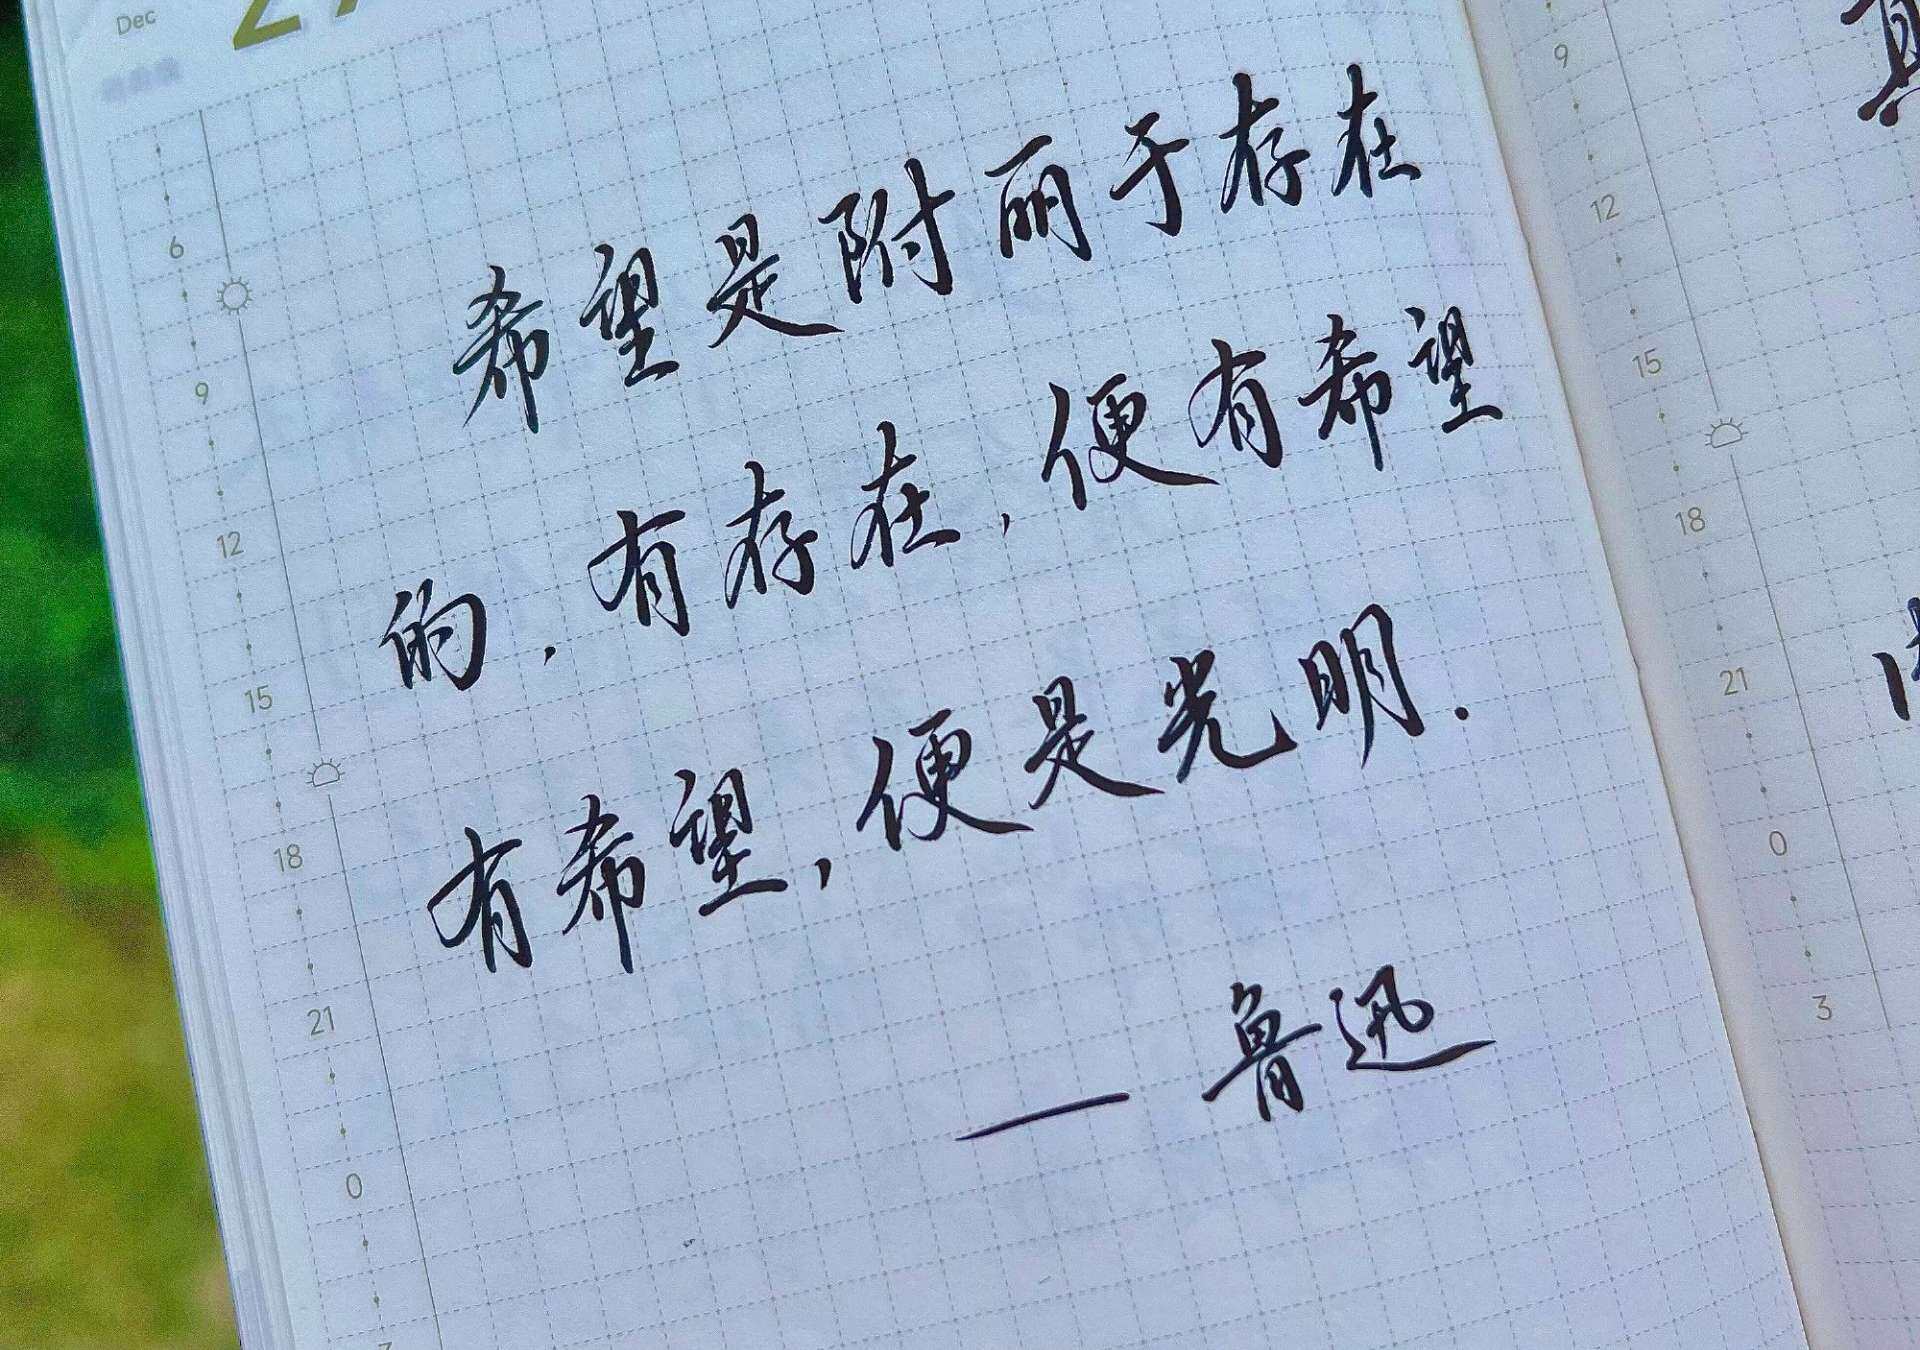 Dec
希望是附丽于存在
的，有存在，便有希望
有希望，便是光明.
— 鲁迅
6
9
12
15
18
21
0
9
12
15
18
21
0
3